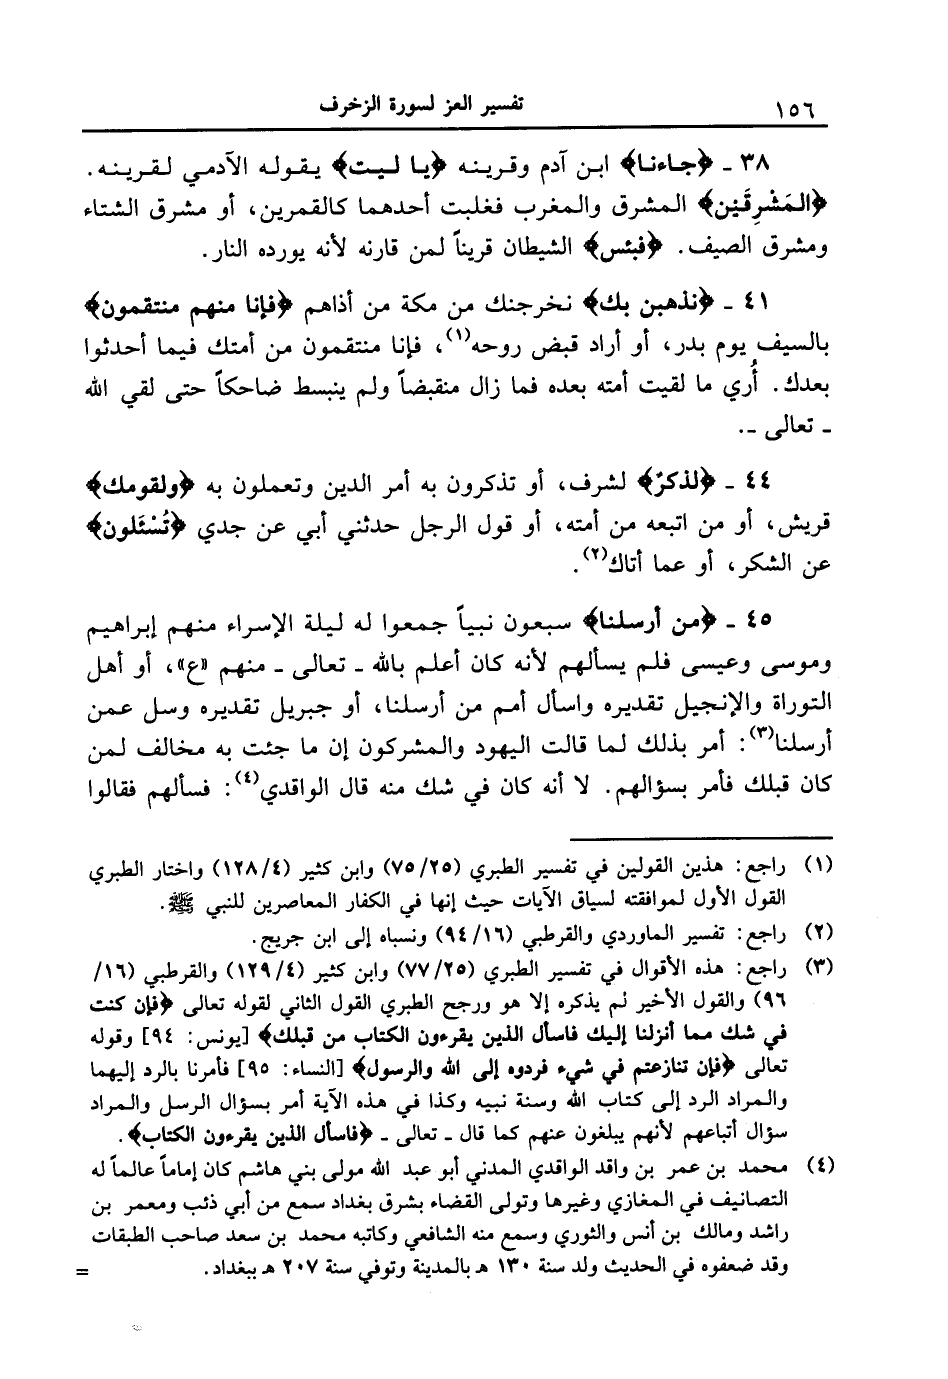 ١٥٦ تفسير العز لسورة الزخرف
٣٨ ـ ﴿جاءنا﴾ ابن آدم وقرينه ﴿يا ليت﴾ يقوله الآدمي لقرينه.
﴿المَشْرِقَيْن﴾ المشرق والمغرب فغلبت أحدهما كالقمرين، أو مشرق الشتاء
ومشرق الصيف. ﴿فبئس﴾ الشيطان قريناً لمن قارنه لأنه يورده النار.
٤١ ـ ﴿نذهبن بك﴾ نخرجنك من مكة من أذاهم ﴿فإنا منهم منتقمون﴾
بالسيف يوم بدر، أو أراد قبض روحه(١)، فإنا منتقمون من أمتك فيما أحدثوا
بعدك. أُري ما لقيت أمته بعده فما زال منقبضاً ولم ينبسط ضاحكاً حتى لقي الله
ـ تعالى ـ.
٤٤ ـ ﴿لذكرٌ﴾ لشرف، أو تذكرون به أمر الدين وتعملون به ﴿ولقومك﴾
قريش، أو من اتبعه من أمته، أو قول الرجل حدثني أبي عن جدي ﴿تُسْئَلون﴾
عن الشكر، أو عما أتاك(٢).
٤٥ ـ ﴿من أرسلنا﴾ سبعون نبياً جمعوا له ليلة الإسراء منهم إبراهيم
وموسى وعيسى فلم يسألهم لأنه كان أعلم بالله ـ تعالى ـ منهم «ع»، أو أهل
التوراة والإنجيل تقديره واسأل أمم من أرسلنا، أو جبريل تقديره وسل عمن
أرسلنا(٣): أمر بذلك لما قالت اليهود والمشركون إن ما جئت به مخالف لمن
كان قبلك فأمر بسؤالهم. لا أنه كان في شك منه قال الواقدي(٤): فسألهم فقالوا
(١) راجع: هذين القولين في تفسير الطبري (٧٥/٢٥) وابن كثير (١٢٨/٤) واختار الطبري
القول الأول لموافقته لسياق الآيات حيث إنها في الكفار المعاصرين للنبي ﷺ.
(٢) راجع: تفسير الماوردي والقرطبي (٩٤/١٦) ونسباه إلى ابن جريج.
(٣) راجع: هذه الأقوال في تفسير الطبري (٧٧/٢٥) وابن كثير (١٢٩/٤) والقرطبي (١٦/
٩٦) والقول الأخير لم يذكره إلا هو ورجح الطبري القول الثاني لقوله تعالى ﴿فإن كنت
في شك مما أنزلنا إليك فاسأل الذين يقرءون الكتاب من قبلك﴾ [يونس: ٩٤] وقوله
تعالى ﴿فإن تنازعتم في شيء فردوه إلى الله والرسول﴾ [النساء: ٩٥] فأمرنا بالرد إليهما
والمراد الرد إلى كتاب الله وسنة نبيه وكذا في هذه الآية أمر بسؤال الرسل والمراد
سؤال أتباعهم لأنهم يبلغون عنهم كما قال ـ تعالى ـ ﴿فاسأل الذين يقرءون الكتاب﴾.
(٤) محمد بن عمر بن واقد الواقدي المدني أبو عبد الله مولى بني هاشم كان إماماً عالماً له
التصانيف في المغازي وغيرها وتولى القضاء بشرق بغداد سمع من أبي ذئب ومعمر بن
راشد ومالك بن أنس والثوري وسمع منه الشافعي وكاتبه محمد بن سعد صاحب الطبقات
وقد ضعفوه في الحديث ولد سنة ١٣٠ هـ بالمدينة وتوفي سنة ٢٠٧ هـ ببغداد. =